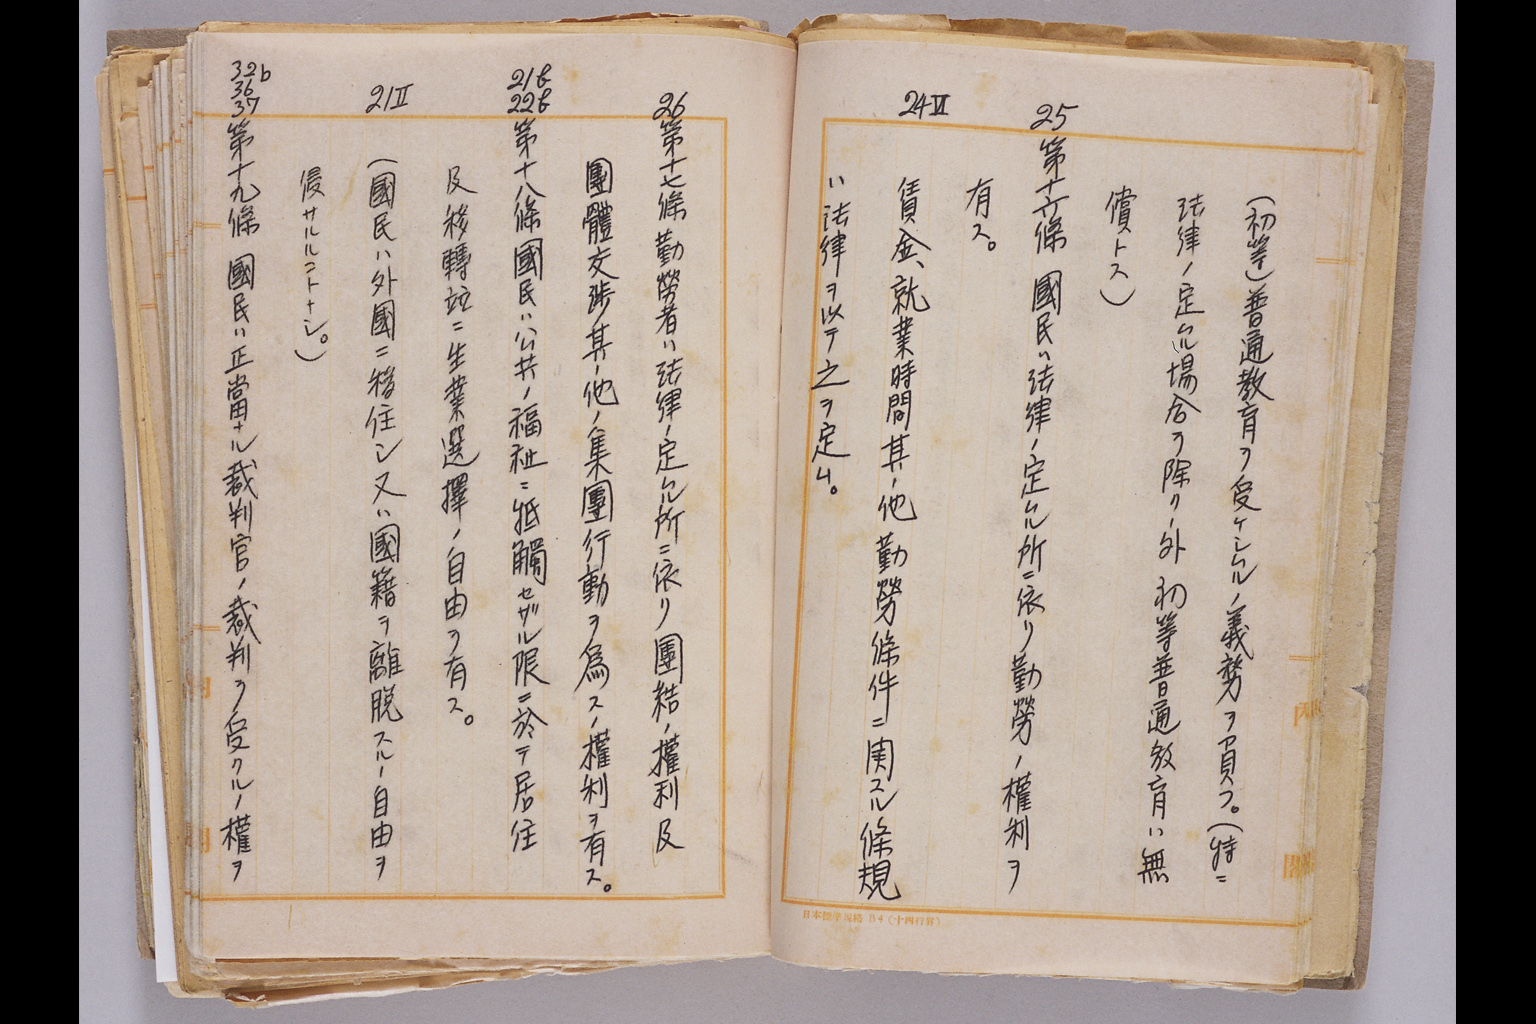 (初等)普通教育ヲ受ケシムルノ義務ヲ負フ。(特ニ
法律ノ定ムル場合ヲ除クノ外初等普通教育ハ無
償トス)
25
第十六條 國民ハ法律ノ定ムル所ニ依リ勤勞ノ權利ヲ
有ス。
24Ⅱ
賃金、就業時間其ノ他勤勞條件ニ関スル條規
ハ法律ヲ以テ之ヲ定ム。
日本標準規格B4(十四行罫)
26
第十七條 勤勞者ハ法律ノ定ムル所ニ依リ團結ノ權利及
團體交渉其ノ他ノ集團行動ヲ為スノ權利ヲ有ス。
21b
22b
第十八條 國民ハ公共ノ福祉ニ抵觸セザル限ニ於テ居住
及移轉竝ニ生業選擇ノ自由ヲ有ス。
21Ⅱ
(國民ハ外國ニ移住シ又ハ國籍ヲ離脱スルノ自由ヲ
侵サルルコトナシ。)
32b
36
37
第十九條 國民ハ正當ナル裁判官ノ裁判ヲ受クルノ權ヲ